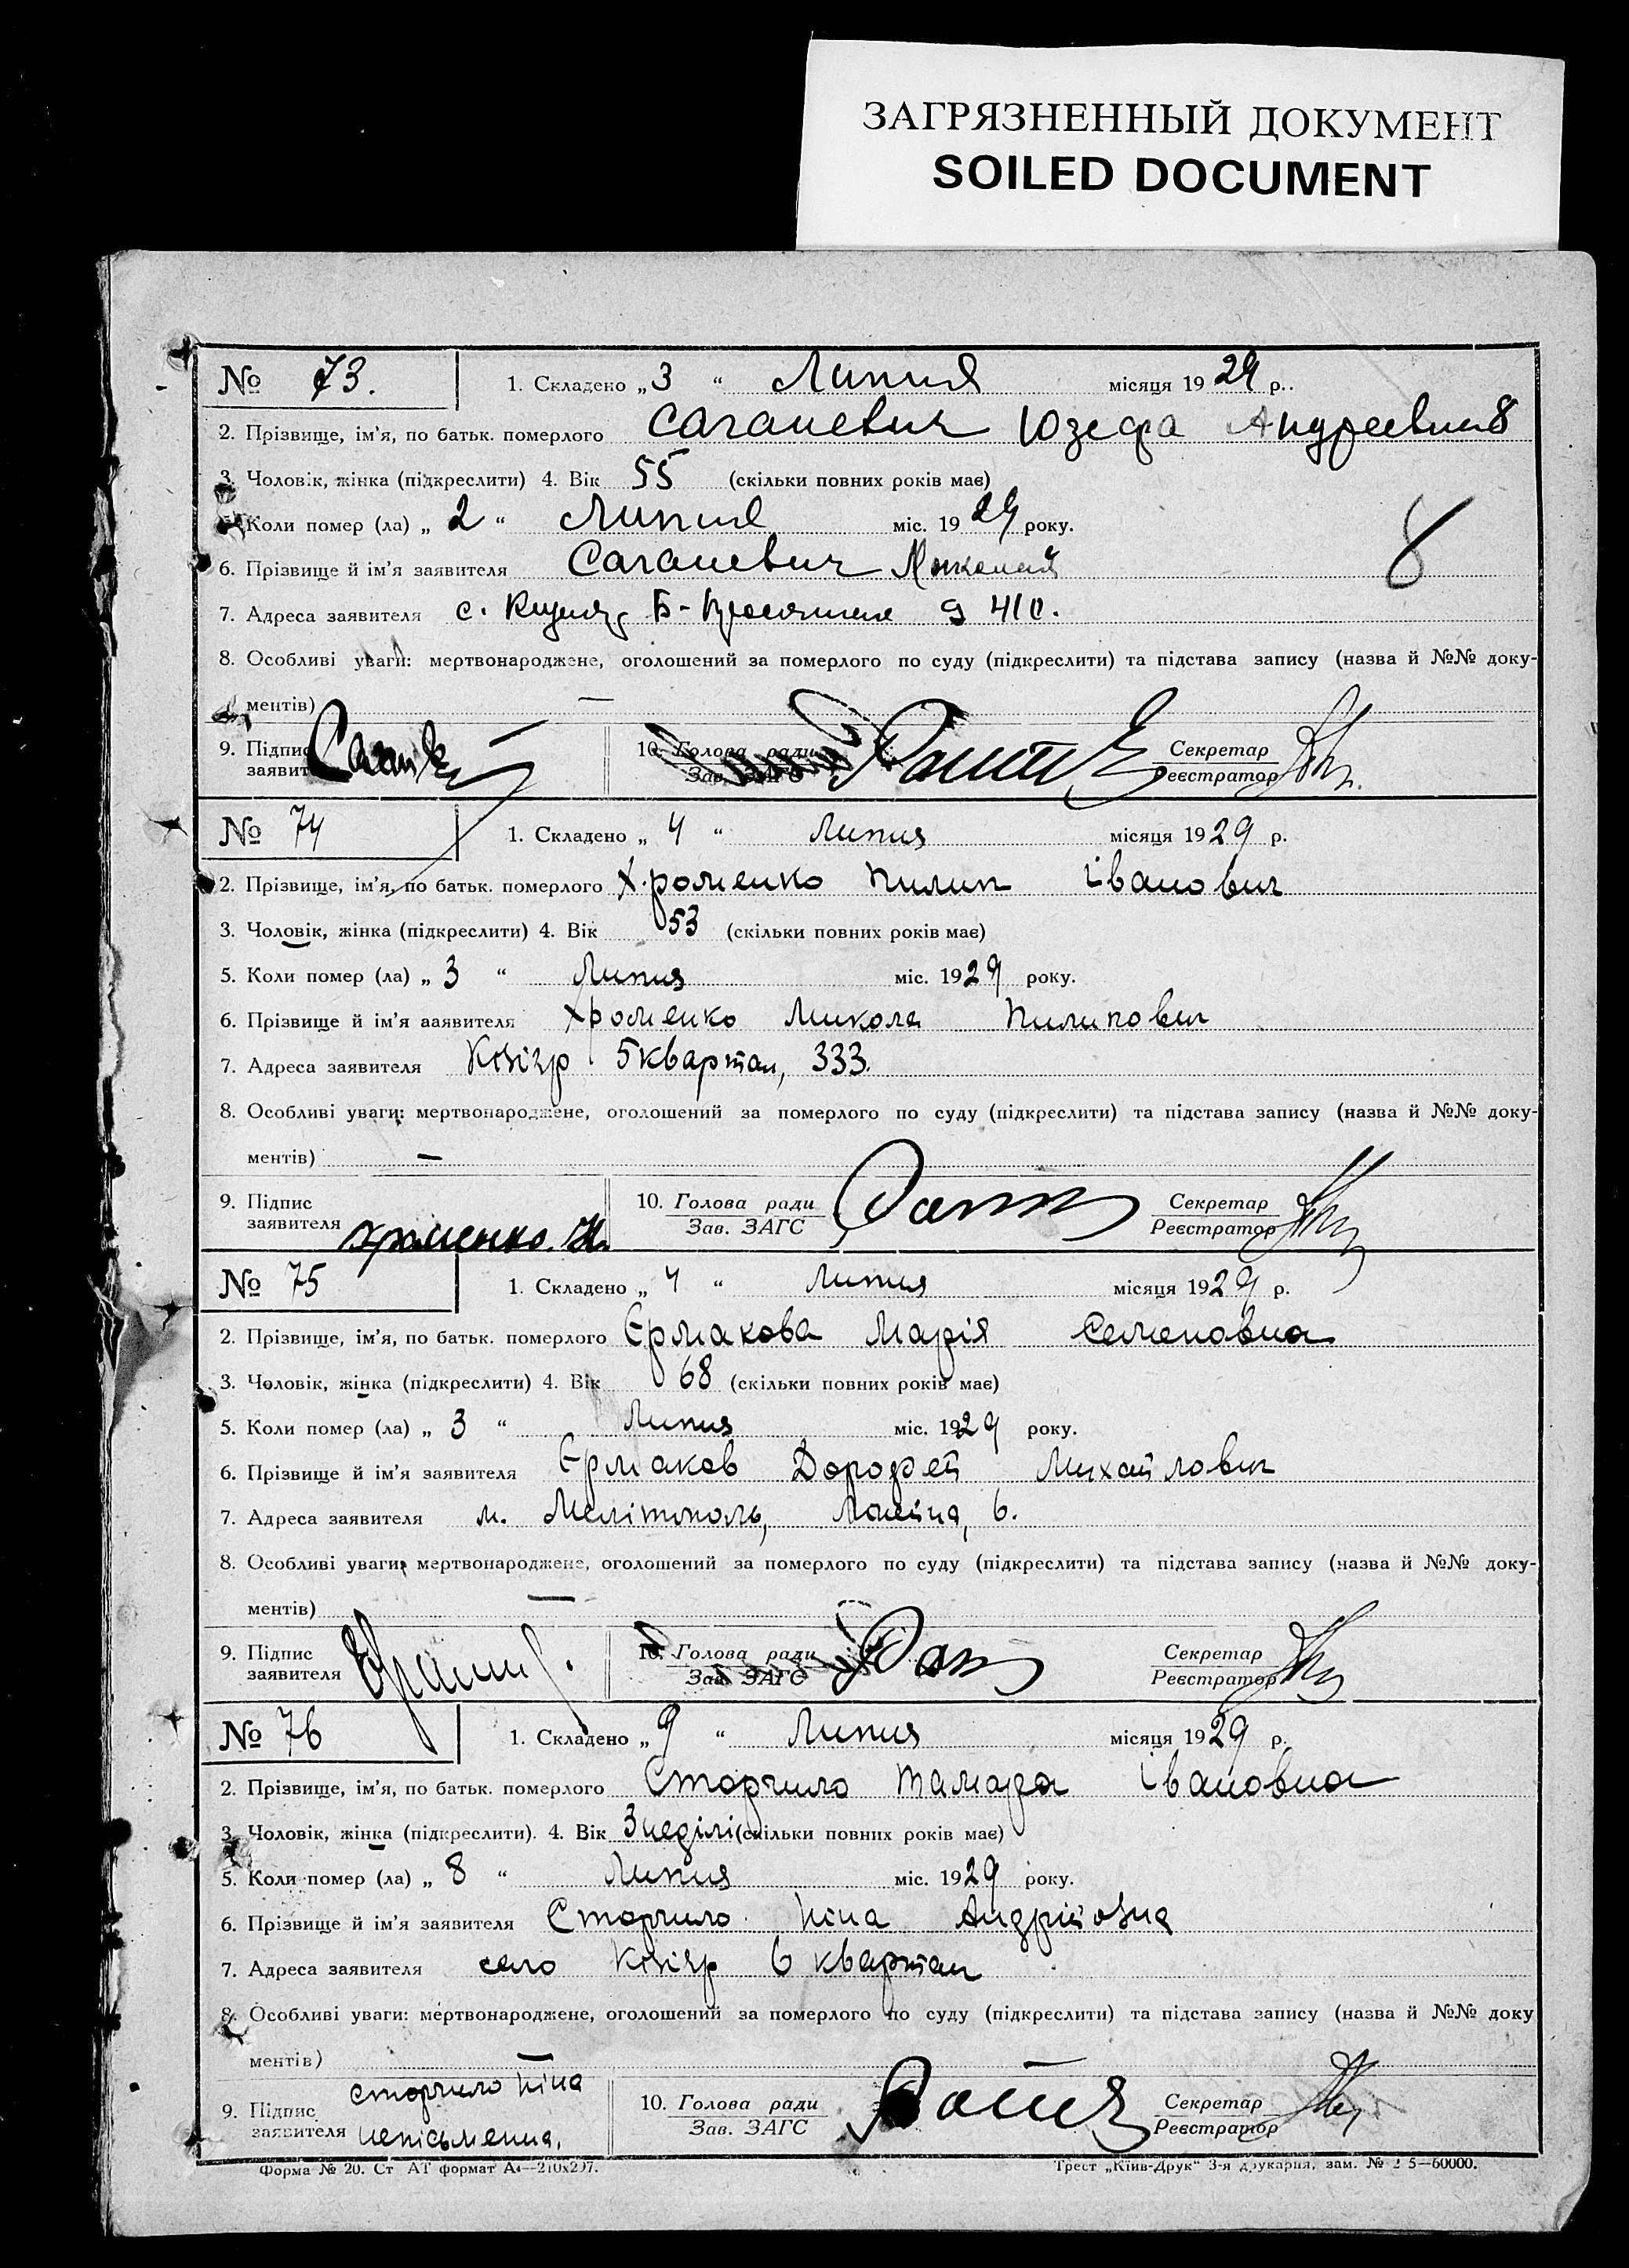 ЗАГРЯЗНЕННЫЙ ДОКУМЕНТ
SOILED DOCUMENT
№ 73. 1. Складено „3“ Липня місяця 1929 р..
2. Прізвище, ім'я, по батьк. померлого Саганевич Юзефа Андреевна
3. Чоловік, жінка (підкреслити) 4. Вік 55 (скільки повних років має)
5. Коли помер (ла) „2“ Липня міс. 1929 року.
6. Прізвище й ім'я заявителя Саганевич Николай
7. Адреса заявителя с.
8. Особливі уваги: мертвонароджене, оголошений за померлого по суду (підкреслити) та підстава запису (назва й №№ доку-
ментів) —
9. Підпис 10. Голова ради Секретар
заявителя Зав. ЗАГС Реєстратор
№ 74 1. Складено „4“ Липня місяця 1929 р.
2. Прізвище, ім'я, по батьк. померлого Хроменко Пилип Іванович
3. Чоловік, жінка (підкреслити) 4. Вік 53 (скільки повних років має)
5. Коли помер (ла) „3“ Липня міс. 1929 року.
6. Прізвище й ім'я заявителя Хроменко Микола Пилипович
7. Адреса заявителя Кізіяр 5 квартал, 333.
8. Особливі уваги: мертвонароджене, оголошений за померлого по суду (підкреслити) та підстава запису (назва й №№ доку-
ментів) —
9. Підпис 10. Голова ради Секретар
заявителя Хроменко. Н. Зав. ЗАГС Реєстратор
№ 75 1. Складено „4“ Липня місяця 1929 р.
2. Прізвище, ім'я, по батьк. померлого Єрмакова Марія Семеновна
3. Чоловік, жінка (підкреслити) 4. Вік 68 (скільки повних років має)
5. Коли помер (ла) „3“ Липня міс. 1929 року.
6. Прізвище й ім'я заявителя Єрмаков Дорофей Михайлович
7. Адреса заявителя м. Мелітополь, 6.
8. Особливі уваги: мертвонароджене, оголошений за померлого по суду (підкреслити) та підстава запису (назва й №№ доку-
ментів) —
9. Підпис 10. Голова ради Секретар
заявителя Зав. ЗАГС Реєстратор
№ 76 1. Складено „9“ Липня місяця 1929 р.
2. Прізвище, ім'я, по батьк. померлого Сторчило Тамара Івановна
3. Чоловік, жінка (підкреслити). 4. Вік 3 неділі (скільки повних років має)
5. Коли помер (ла) „8“ Липня міс. 1929 року.
6. Прізвище й ім'я заявителя Сторчило Ніна Андрійовна
7. Адреса заявителя село Кізіяр 6 квартал
8. Особливі уваги: мертвонароджене, оголошений за померлого по суду (підкреслити) та підстава запису (назва й №№ доку
ментів) —
сторчило Ніна
9. Підпис 10. Голова ради Секретар
заявителя неписьменна, Зав. ЗАГС Реєстратор
Форма № 20. Ст АТ формат А4—210x297. Трест „Київ-Друк“ 3-я друкарня, зам. № 5—60000.